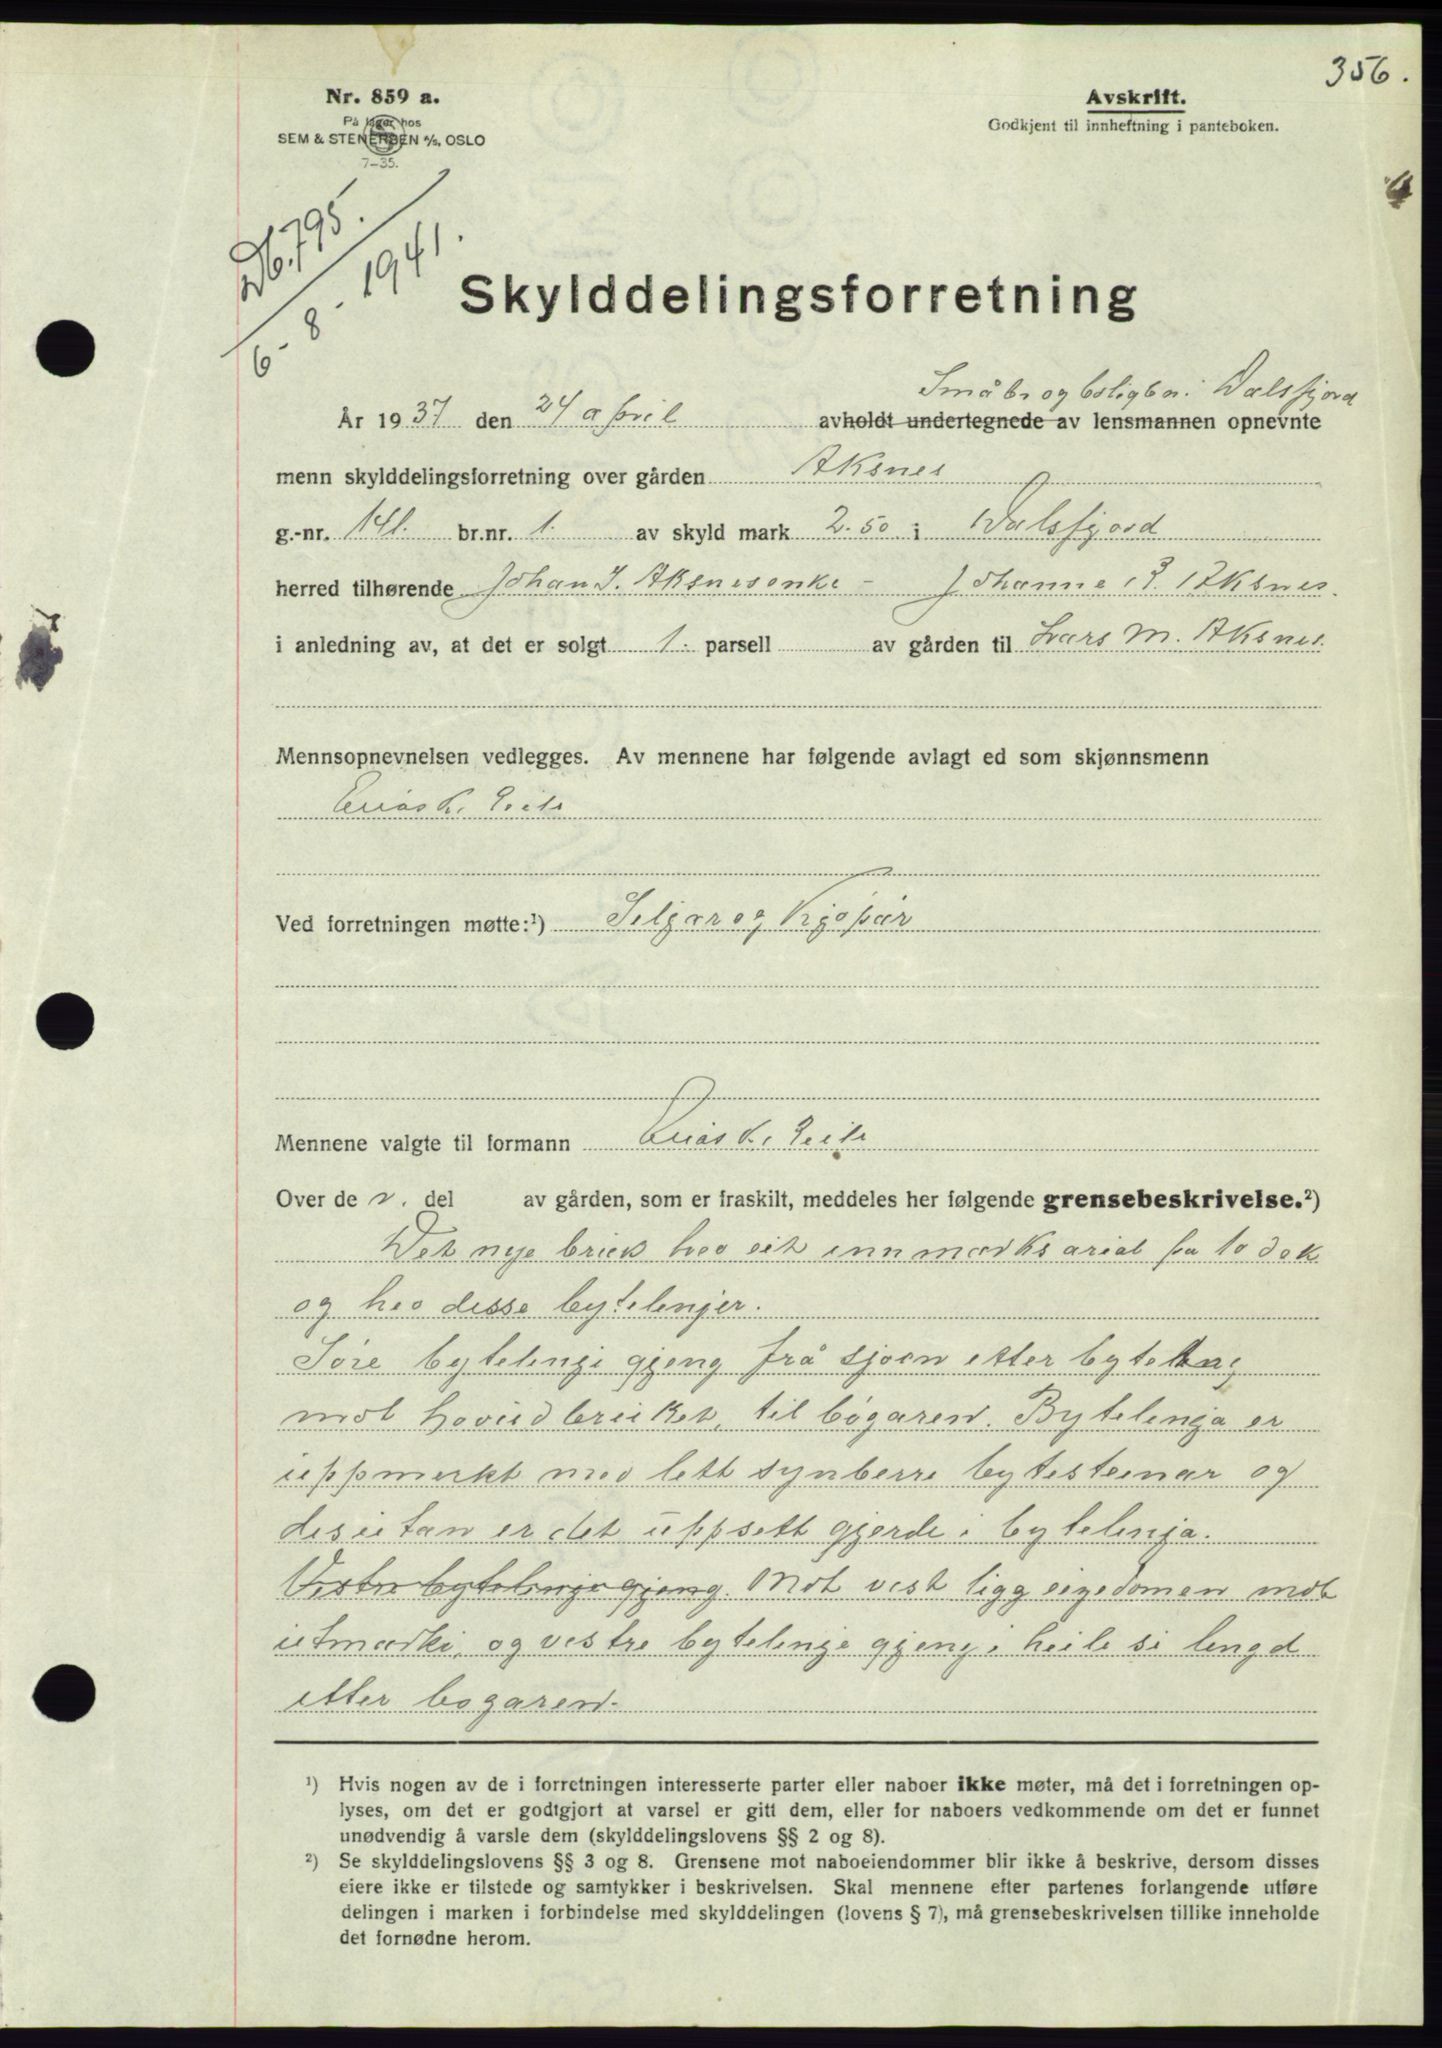 356.
Nr. 859 a.
På lager hos
SEM & STENERSEN A/S, OSLO
7-35.
Avskrift.
Godkjent til innheftning i panteboken.
Db. 795.
6-8-1941.
Skylddelingsforretning
Småbr og boligbr. i Dalsfjord
År 1937 den 24 april avholdt undertegnede av lensmannen opnevnte
menn skylddelingsforretning over gården Aksnes
g.-nr. 141. br.nr. 1. av skyld mark 2.50 i Dalsfjord
herred tilhørende Johan J. Aksnes enke - Johanne Aksnes.
i anledning av, at det er solgt 1. parsell av gården til Lars M. Aksnes.
Mennsopnevnelsen vedlegges. Av mennene har følgende avlagt ed som skjønnsmenn
Ved forretningen møtte:¹) Seljar og Kjøpar
Mennene valgte til formann
Over de n. del av gården, som er fraskilt, meddeles her følgende grensebeskrivelse.²)
Det nye bruk hev eit innmarksarial på 10 dek
og hev disse bytelinjer.
Søre bytelinje gjeng frå sjøen etter byteling
mot hovudbruket, til bøgaren. Bytelinja er
uppmerkt med lett synberre bytesteinar og
desutan er det uppsett gjerde i bytelinja.
Vestre bytelinje gjeng. Mot vest ligg eigedomen mot
utmarki, og vestre bytelinje gjeng i heile si lengd
etter bøgaren.
¹) Hvis nogen av de i forretningen interesserte parter eller naboer ikke møter, må det i forretningen op-
lyses, om det er godtgjort at varsel er gitt dem, eller for naboers vedkommende om det er funnet
unødvendig å varsle dem (skylddelingslovens §§ 2 og 8).
²) Se skylddelingslovens §§ 3 og 8. Grensene mot naboeiendommer blir ikke å beskrive, dersom disses
eiere ikke er tilstede og samtykker i beskrivelsen. Skal mennene efter partenes forlangende utføre
delingen i marken i forbindelse med skylddelingen (lovens § 7), må grensebeskrivelsen tillike inneholde
det fornødne herom.